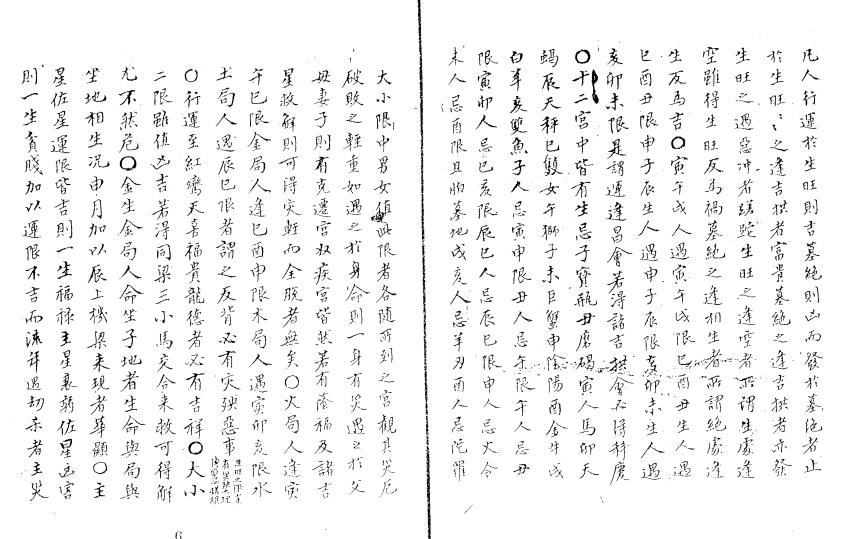 凡人行運於生旺則吉墓絶則凶而發於墓絶者止
於生旺〻之逢吉拱者富貴墓絶之逢吉拱者亦發
生旺之遇惡冲者蹉跎生旺之逢空者所謂生處逢
空雖得生旺反為禍墓絶之逢相生者所謂絶處逢
生反為吉〇寅午戌人遇寅午戌限巳酉丑生人遇
巳酉丑限申子辰生人遇申子辰限亥卯未生人遇
亥卯未限是謂運逢昌會若得諸吉拱會必得科慶
〇十二宮中皆有生忌子寶瓶丑磨碣寅人馬卯天
蝎辰天秤巳雙女午獅子未巨蟹申陰陽酉金牛戌
白羊亥雙魚子人忌寅申限丑人忌午限午人忌丑
限寅卯人忌巳亥限辰巳人忌辰巳限申人忌火令
未人忌酉限且怕墓地戌亥人忌羊刃酉人忌陀羅
大小限中男女值此限者各随所到之宮觀其災厄
破敗之輕重如遇之於身命則一身有災遇之於父
母妻子則有克遷宮奴疾宮皆然若有蔭福及諸吉
星救解則可得灾輕而全脫者無矣〇火局人逢寅
午巳限金局人逢巳酉申限水局人遇寅卯亥限水
土局人遇辰巳限者謂之反背必有灾殃惡事
〇行運至紅鸞天喜福貴龍德者必有吉祥〇大小
二限雖值凶吉若得同梁三小馬交合来救可得解
尤不然危〇金生金局人命坐子地者生命與局與
坐地相生况申月加以辰上機梁来現者華顯〇主
星佐星運限皆吉則一生福禄主星衰弱佐星凶害
則一生貧賤加以運限不吉而流祥遇劫杀者主災
6